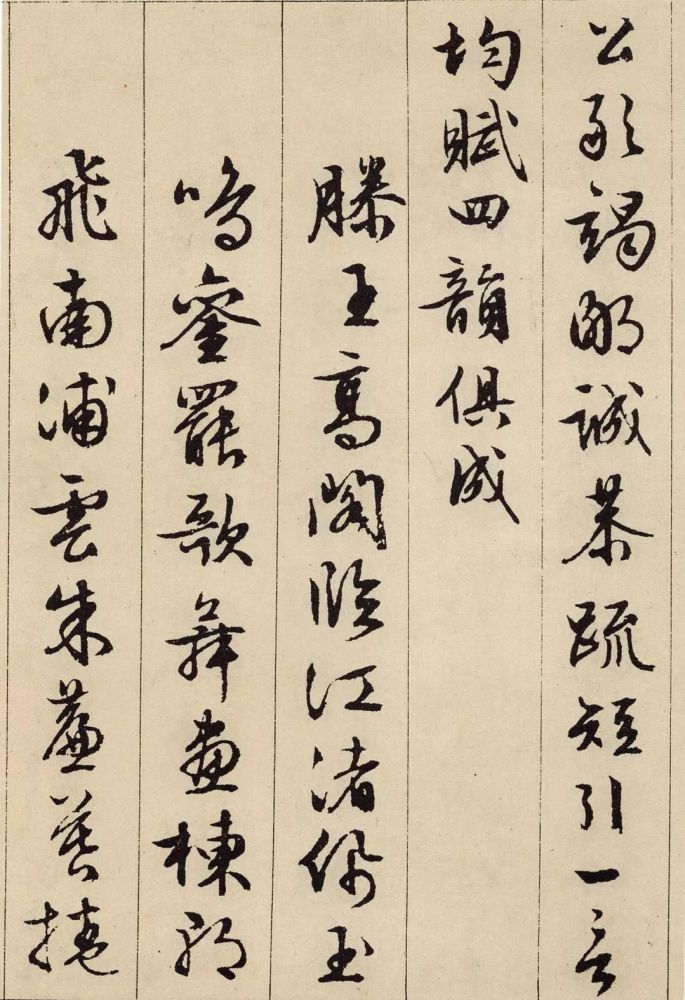 公敢竭鄙誠恭疏短引一言
均賦四韻俱成
滕王高閣臨江渚佩玉
鳴鑾罷歌舞畫棟朝
飛南浦雲朱簾暮捲